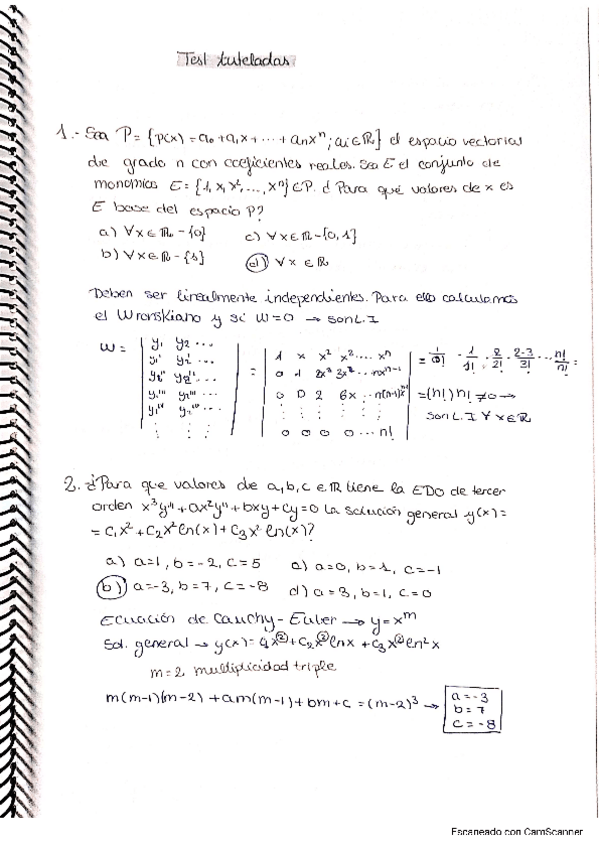 Test tuteladas
1.- Sea P = {p(x) = a₀ + a₁x + ... + aₙxⁿ ; aᵢ ∈ ℝ} el espacio vectorial
de grado n con coeficientes reales. Sea E el conjunto de
monomios E = {1, x, x², ..., xⁿ} ⊂ P. ¿Para qué valores de x es
E base del espacio P?
a) ∀x ∈ ℝ - {0} c) ∀x ∈ ℝ - {0, 1}
b) ∀x ∈ ℝ - {1} d) ∀x ∈ ℝ
Deben ser linealmente independientes. Para ello calculamos
el Wronskiano y si W = 0 → son L.I
W = | y₁ y₂ ... | = | 1 x x² x³ ... xⁿ | = 1/0! · 1/1! · 2/2! · 2·3/3! ... n!/n! =
| y₁' y₂' ... | 0 1 2x³ 3x² ... nxⁿ⁻¹ |
| y₁'' y₂'' ... | 0 0 2 6x ... n(n-1)xⁿ | = (n!) n! ≠ 0 →
| y₁''' y₂''' ... | : : : : : | son L.I ∀x ∈ ℝ
| y₁'ᵛ y₂'ᵛ ... | 0 0 0 0 ... n! |
2. ¿Para que valores de a, b, c ∈ ℝ tiene la EDO de tercer
orden x³y''' + ax²y'' + bxy + cy = 0 la solución general y(x) =
= c₁x² + c₂x² ln(x) + c₃x² ln(x)?
a) a=1, b=-2, c=5 c) a=0, b=1, c=-1
b) a=-3, b=7, c=-8 d) a=3, b=1, c=0
Ecuación de Cauchy-Euler → y = xᵐ
Sol. general → y(x) = c₁x² + c₂x² lnx + c₃x² ln²x
m=2 multiplicidad triple
m(m-1)(m-2) + am(m-1) + bm + c = (m-2)³ → a = -3
b = 7
c = -8
Escaneado con CamScanner